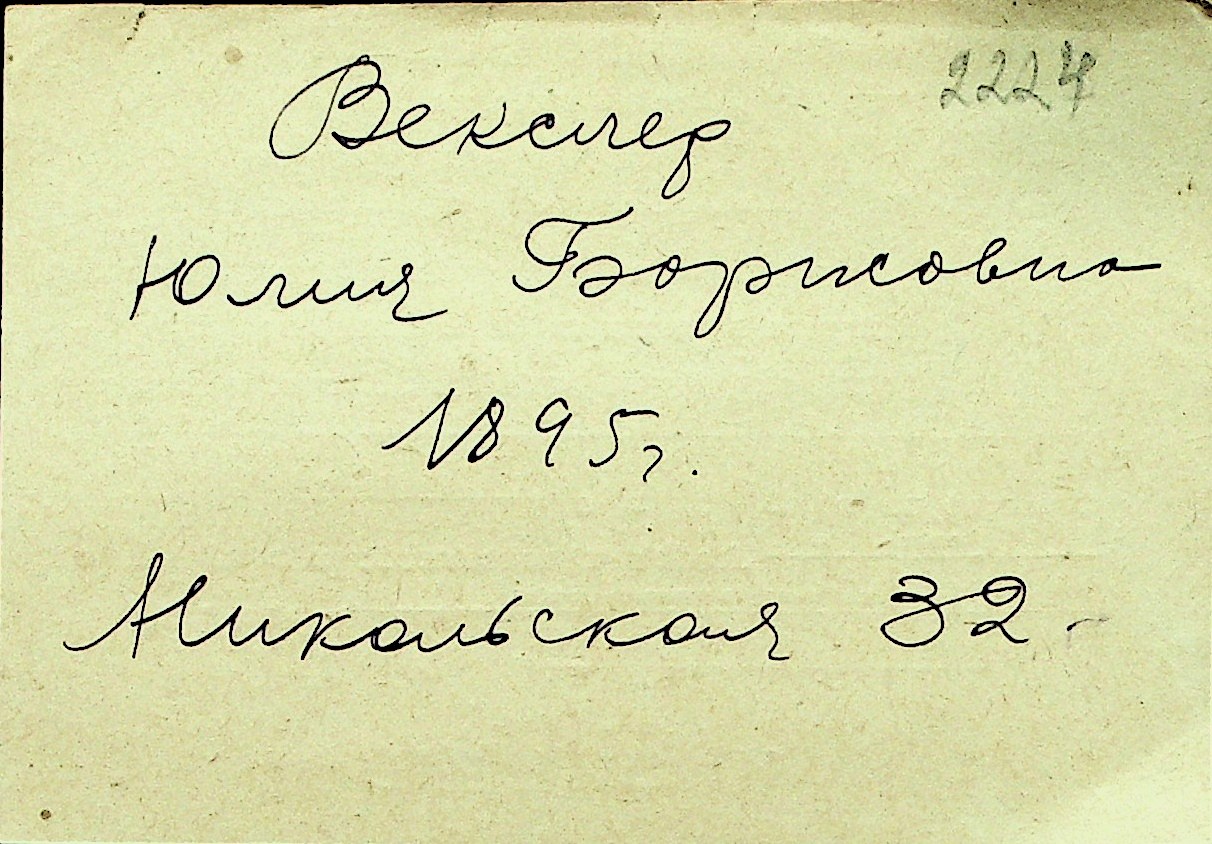 2224
Векслер
Юлия Борисовна
1895г.
Никольская 32